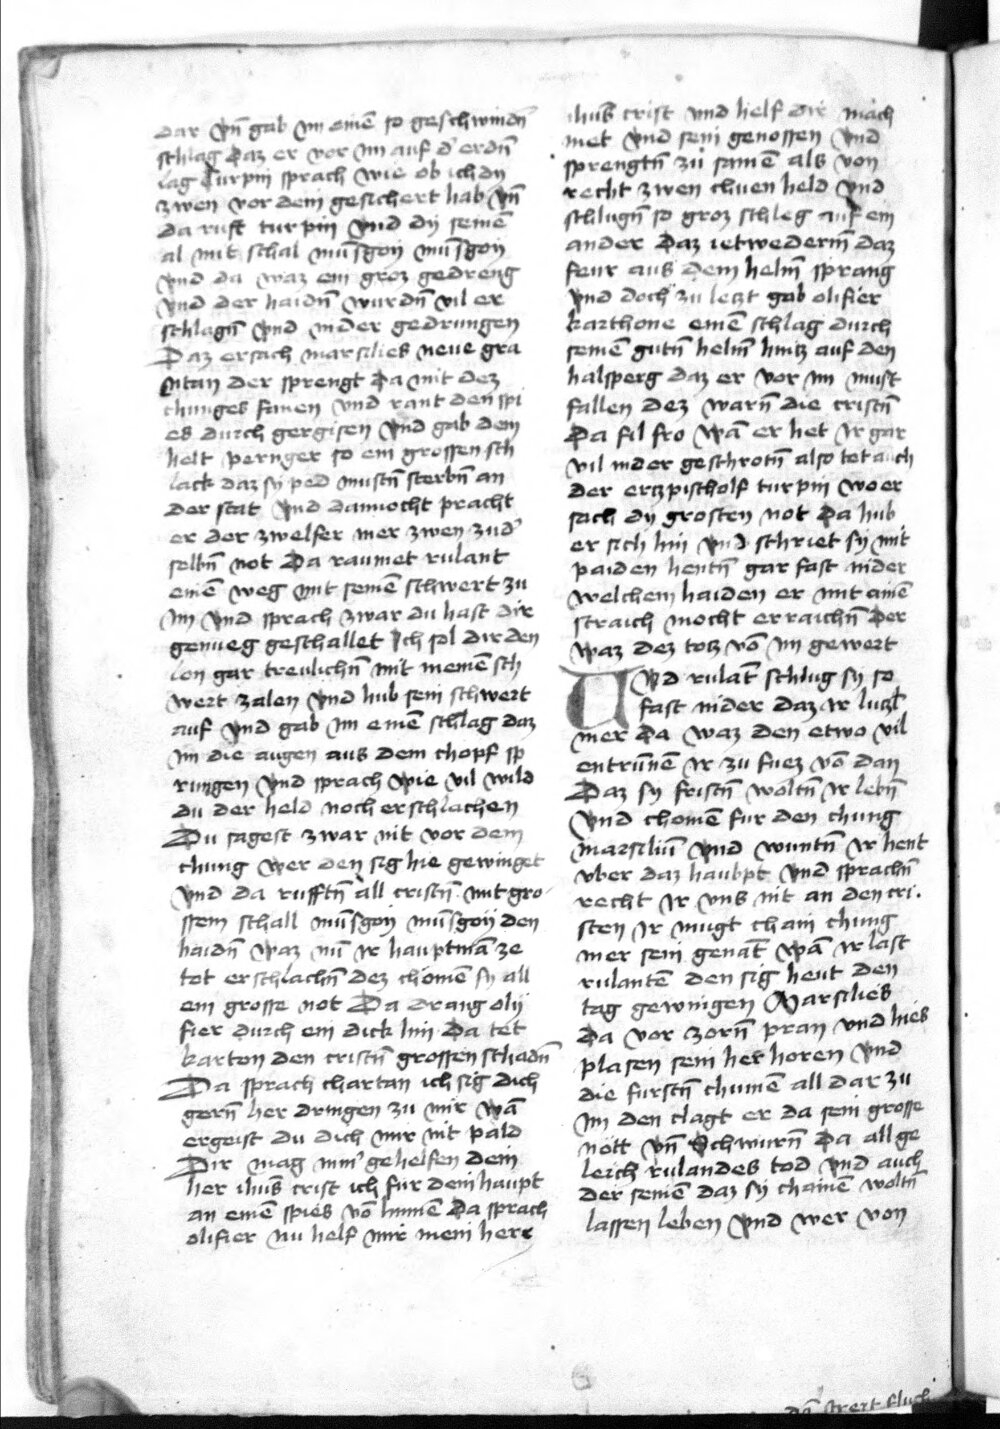 dar vn̄ gab im einē so geschwindn̄
schlag daz er vor im auf d' erdn̄
lag Turpin sprach wie ob ich dy
zwen vor dem gesichert hab vn̄
da ruft turpin vnd dy seinē
al mit schal mūsgoy mūsgoy
vnd da waz ein groz gedreng
vnd der haidn̄ wurdn̄ vil er
schlagn̄ vnd nider gedrungen
Daz ersach marsilies neue gra
mtan der sprengt da mit dez
chuniges fanen vnd rant den spi
es durch gergisen vnd gab dem
helt pernger so ein grossen sch
lack daz sy ped mustn̄ sterbn̄ an
der stat vnd dannocht pracht
er der zwelfer mer zwen zud'
selbn̄ not Da raumet rulant
einē weg mit seinē schwert zu
im vnd sprach zwar du hast dir
genueg geschallet Ich sol dir den
lon gar treulichn̄ mit meinē sch
wert zalen vnd hub sein schwert
auf vnd gab im einē schlag daz
im die augen aus dem chopf sp
ringen vnd sprach wie vil wild
du der held noch erschlachen
Du sagest zwar nit vor dem
chung wer den sig hie gewinget
vnd da rufftn̄ all cristn̄ mit gro
ssem schall mūsgoy mūsgoy den
haidn̄ waz nū ir hauptmā ze
tot erschlachn̄ dez chomē sy all
ein grosse not Da drang olij
fier durch ein dick hin Da tet
karton den cristn̄ grossen schadn̄
Da sprach chartan ich sig dich
gern̄ her dringen zu mir wā
ergeist du dich mir nit pald
Dir mag nim' gehelfen dein
her ihūs crist ich fur dein haupt
an einē spies vō hinnē Da sprach
olifier nu helf mir mein herr
ihūs crist vnd helf dir mach
met vnd sein genossen vnd
sprengtn̄ zu samē als von
recht zwen chuen held vnd
schlugn̄ so groz schleg auf ein
ander daz ietwederm̄ daz
feur aus dem helm̄ sprang
vnd doch zu letzt gab olifier
karthone einē schlag durch
seinē gutn̄ helm̄ hintz auf den
halsperg daz er vor im must
fallen dez warn̄ die cristn̄
Da fil fro wā er het ir gar
vil nider geschrotn̄ also tet auch
der ertzpischolf turpin wo er
sach dy grosten not Da hub
er sich hin vnd schriet sy mit
paiden hentn̄ gar fast nider
welchem haiden er mit ainē
straich mocht erraichn̄ Der
waz dez totz vō im gewert
Vnd rulāt schlug sy so
fast nider daz ir lutzl
mer da waz den etwo vil
entrūnē ir zu fuez vō dan
Daz sy fristn̄ woltn̄ ir lebn̄
vnd chomē fur den chung
marsiliū vnd wuntn̄ ir hent
vber daz haubpt vnd sprachn̄
recht ir vns nit an den cri.
sten ir mugt chain chung
mer sein genāt wā ir last
rulantē den sig heut den
tag gewinigen Marsilies
Da vor zorn̄ pran vnd hies
plasen sein her horen vnd
die furstn̄ chumē all dar zu
im den clagt er da sein grosse
nott vn̄ schwurn̄ Da all ge
leich rulandes tod vnd auch
der seinē daz sy chainē woltn̄
lassen leben vnd wer von